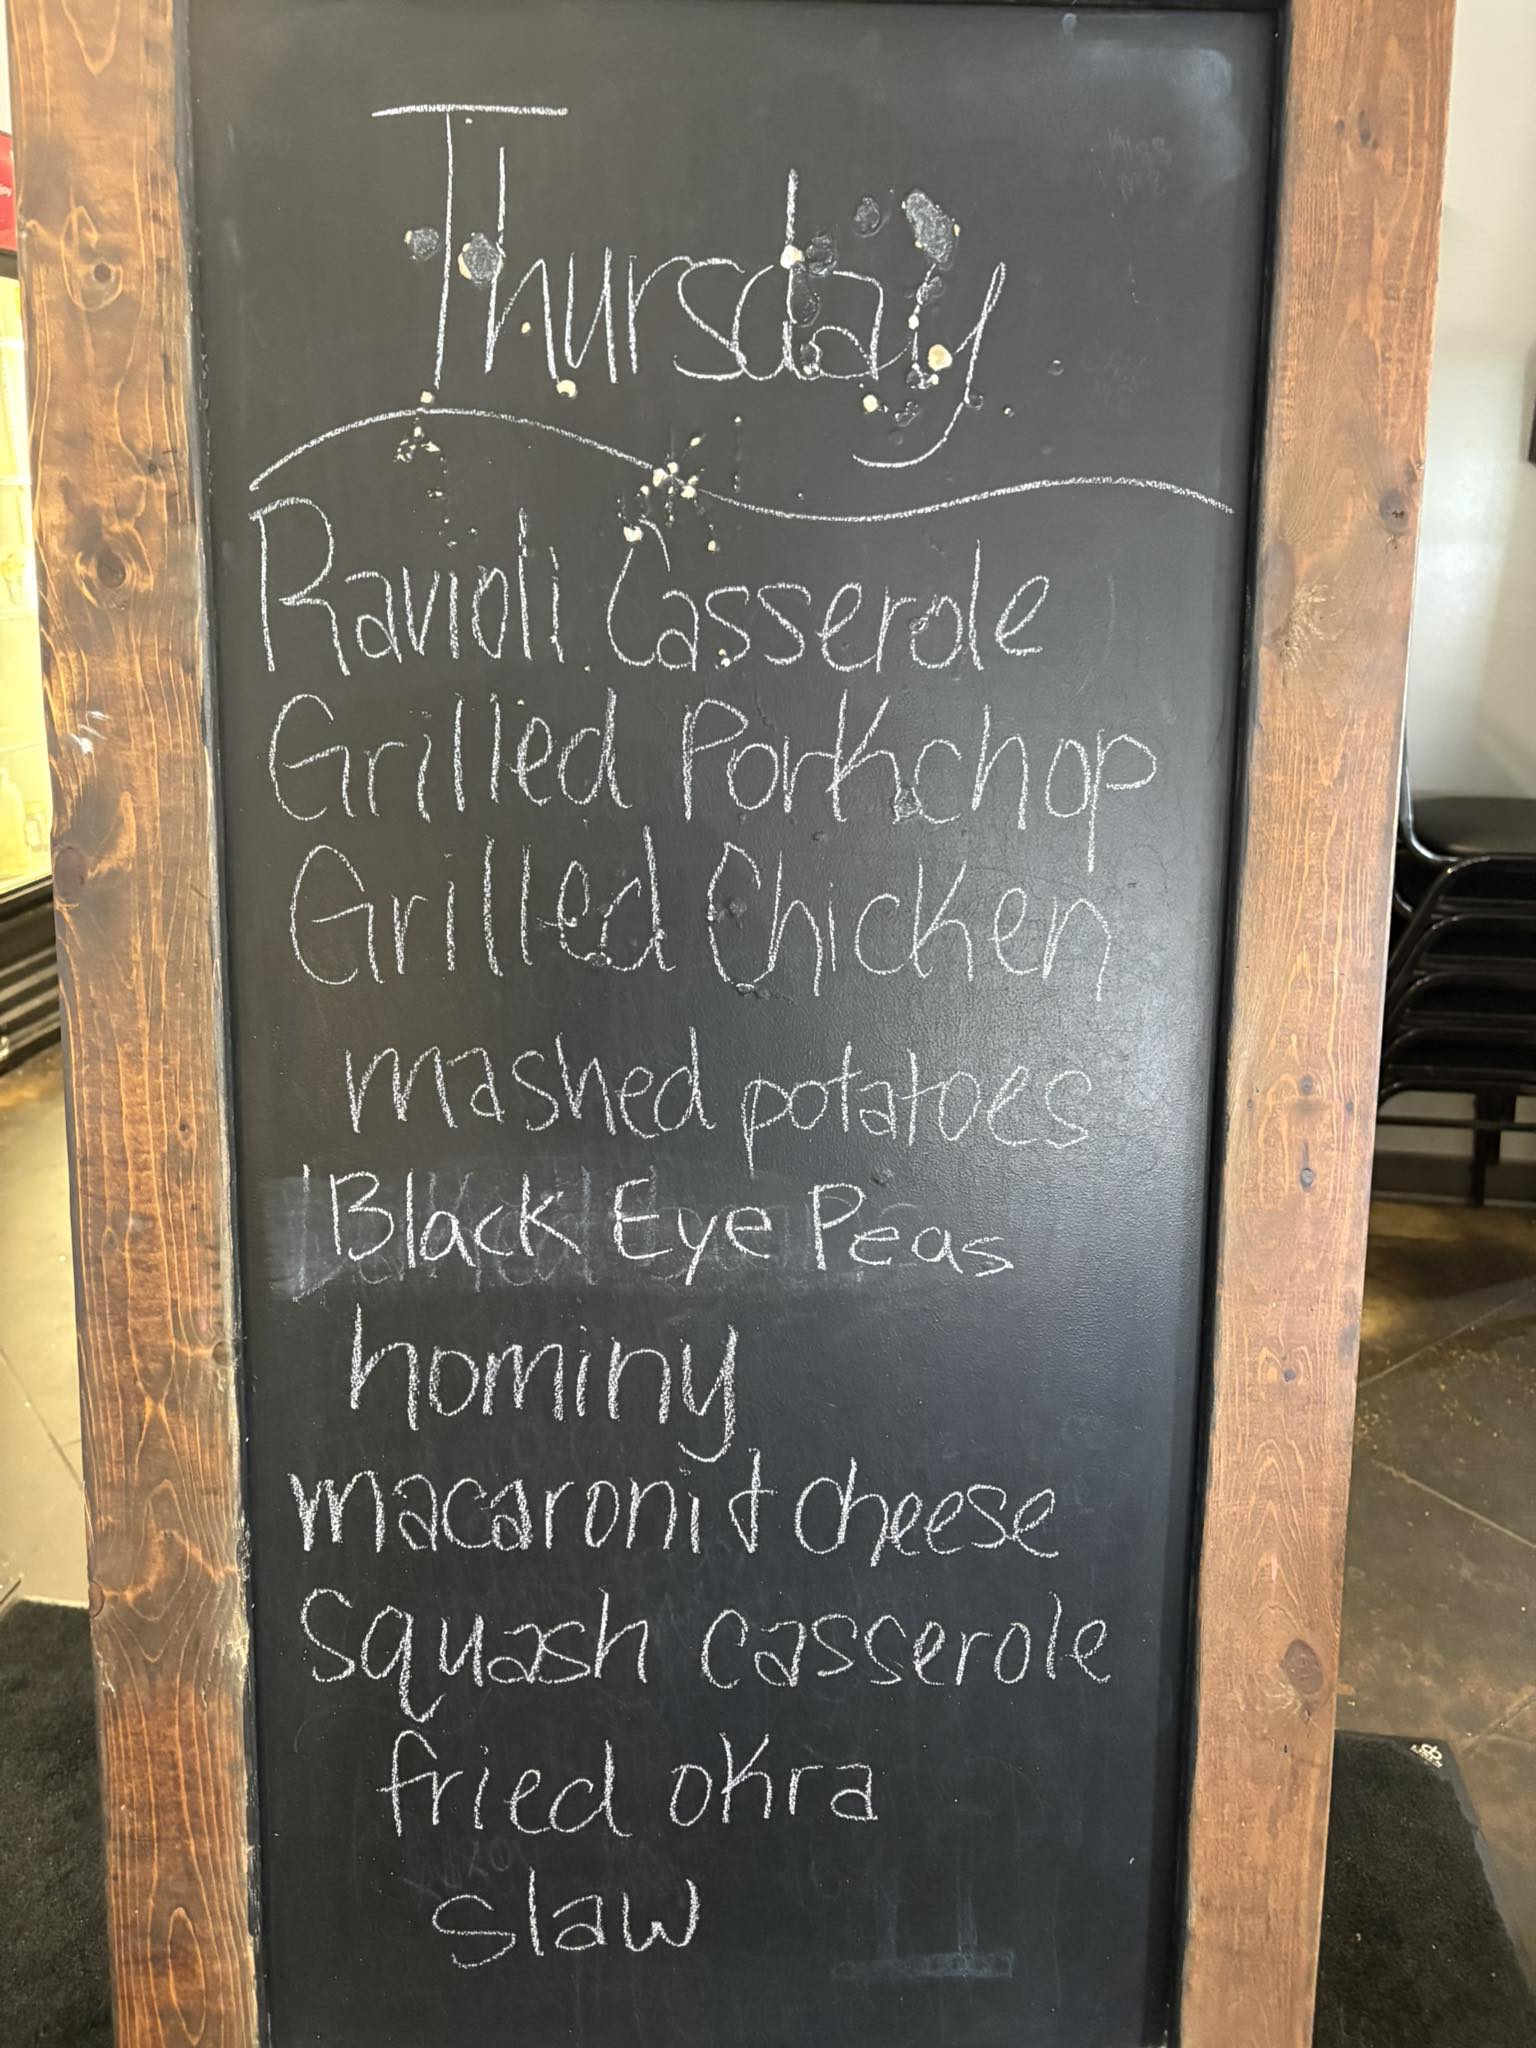 Thursday
Ravioli Casserole
Grilled Porkchop
Grilled Chicken
mashed potatoes
Black Eye Peas
hominy
macaroni & cheese
Squash casserole
fried okra
slaw